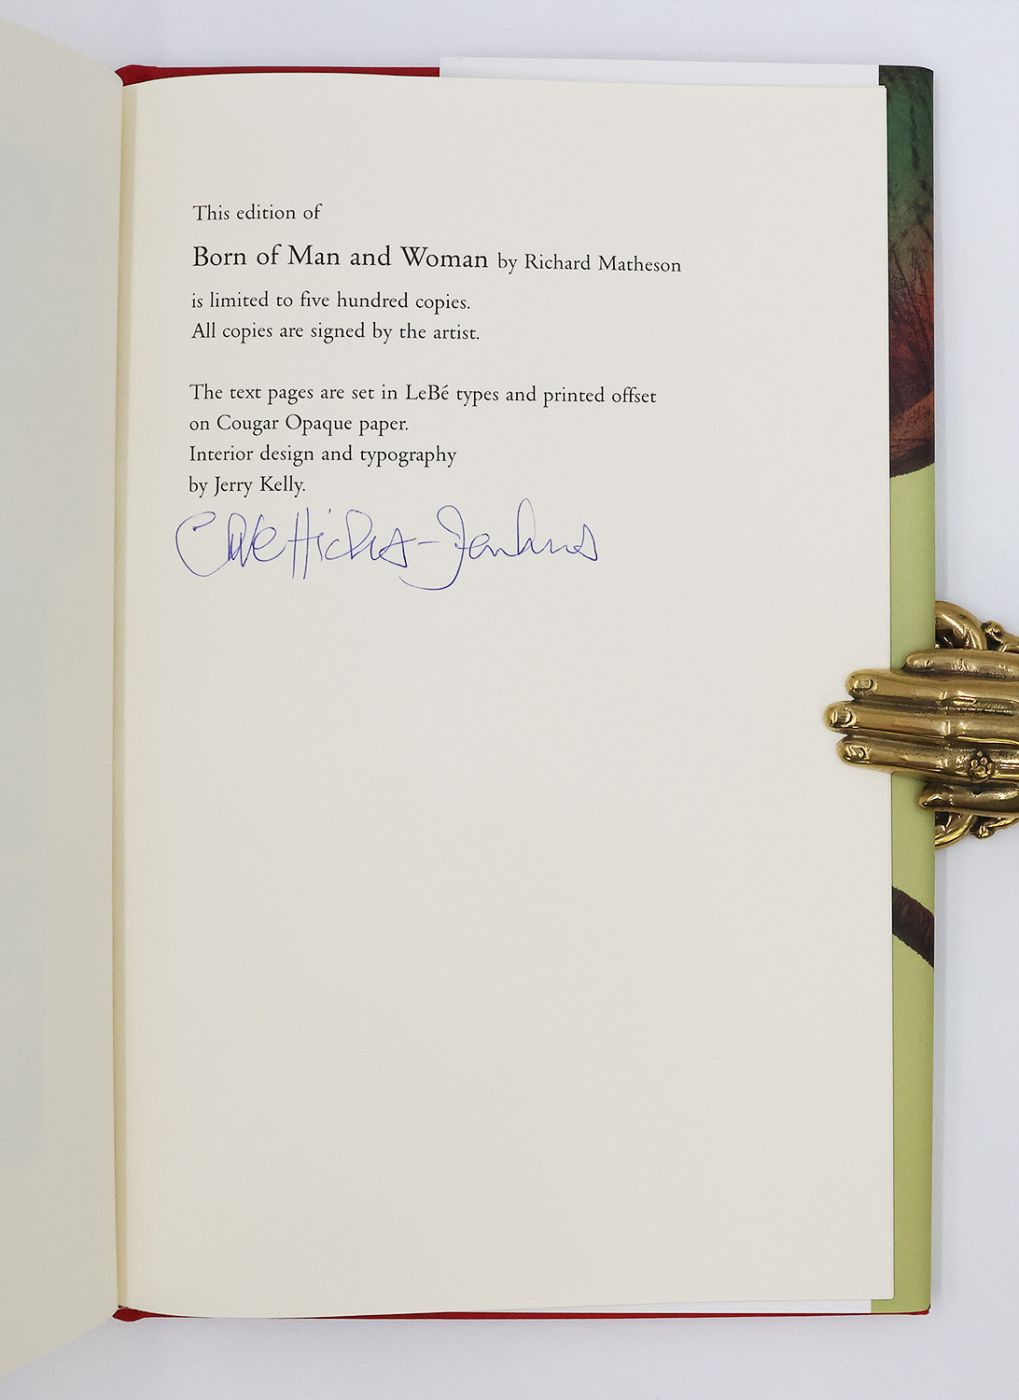 This edition of
Born of Man and Woman by Richard Matheson
is limited to five hundred copies.
All copies are signed by the artist.
The text pages are set in LeBé types and printed offset
on Cougar Opaque paper.
Interior design and typography
by Jerry Kelly.
Clive Hicks-Jenkins